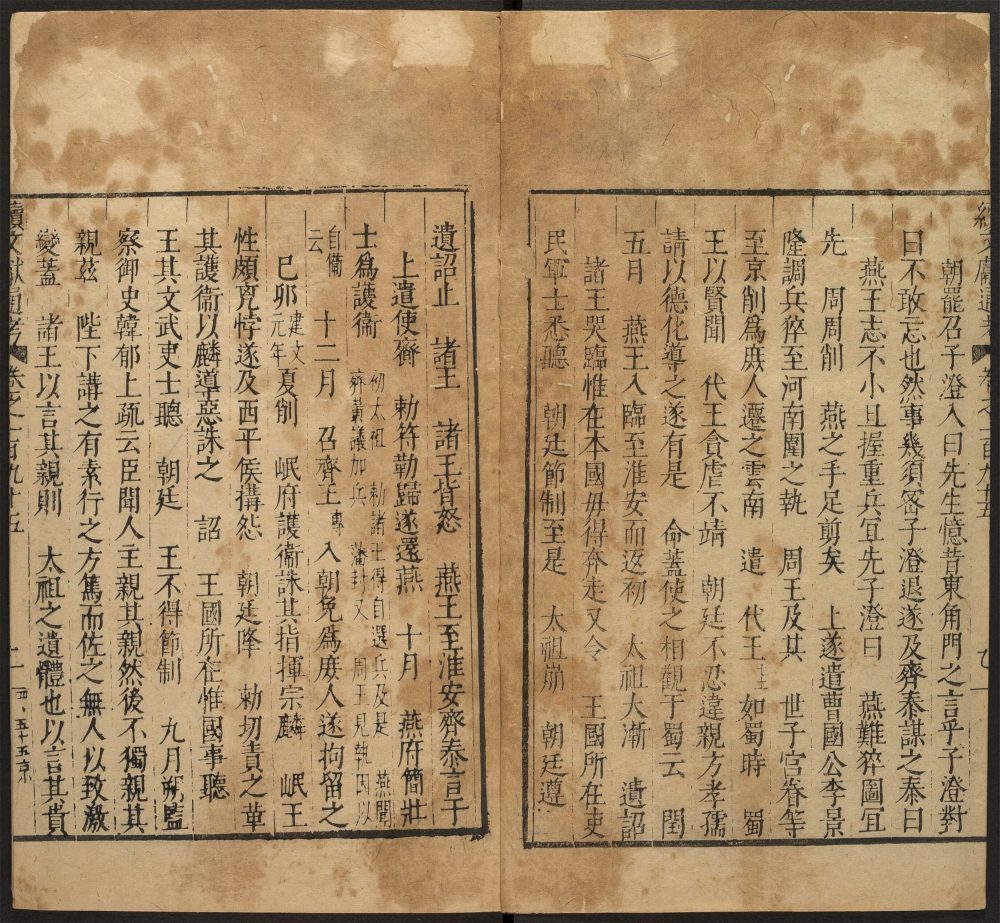 續文獻通考 卷之一百九十五
朝罷召子澄入曰先生憶昔東角門之言乎子澄對
曰不敢忘也然事幾須密子澄退遂及齊泰謀之泰曰
燕王志不小且握重兵冝先子澄曰 燕難猝圖冝
先 周周削 燕之手足剪矣 上遂遣曹國公李景
隆調兵猝至河南圍之執 周王及其 世子宮眷等
至京削爲庻人遷之雲南 遣 代王 如蜀時 蜀
王以賢聞 代王貪虐不靖 朝廷不忍違親方孝孺
請以德化導之遂有是 命蓋使之相觀于蜀云 閏
五月 燕王入臨至淮安而返初 太祖大漸 遺詔
諸王哭臨惟在本國毋得奔走又令 王國所在吏
民軍士悉聽 朝廷節制至是 太祖崩 朝廷遵
遺詔止 諸王 諸王皆怒 燕王至淮安齊泰言于
上遣使齎 勅符勒歸遂還燕 十月 燕府簡壯
士爲護衛 初太祖 勅諸王得自選兵及是 燕聞
齊黄議加兵 藩封又 周王見執因以
自備云 十二月 召齊王 榑 入朝免爲庻人遂拘留之
己卯 建文元年 夏削 岷府護衛誅其指揮宗麟 岷王
性頗亮悖遂及西平侯搆怨 朝廷降 勅切責之革
其護衛以麟導惡誅之 詔 王國所在惟國事聽
王其文武吏士聽 朝廷 王不得節制 九月朔監
察御史韓郁上疏云臣聞人主親其親然後不獨親其
親兹 陛下講之有素行之方篤而佐之無人以致激
變蓋 諸王以言其親則 太祖之遺體也以言其貴
續文獻通考 卷之一百九十五 二